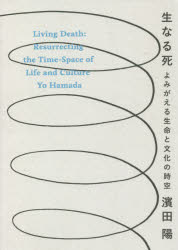 生なる死
よみがえる生命と文化の時空
濱田 陽
Living Death:
Resurrecting
the Time-Space of
Life and Culture
Yo Hamada